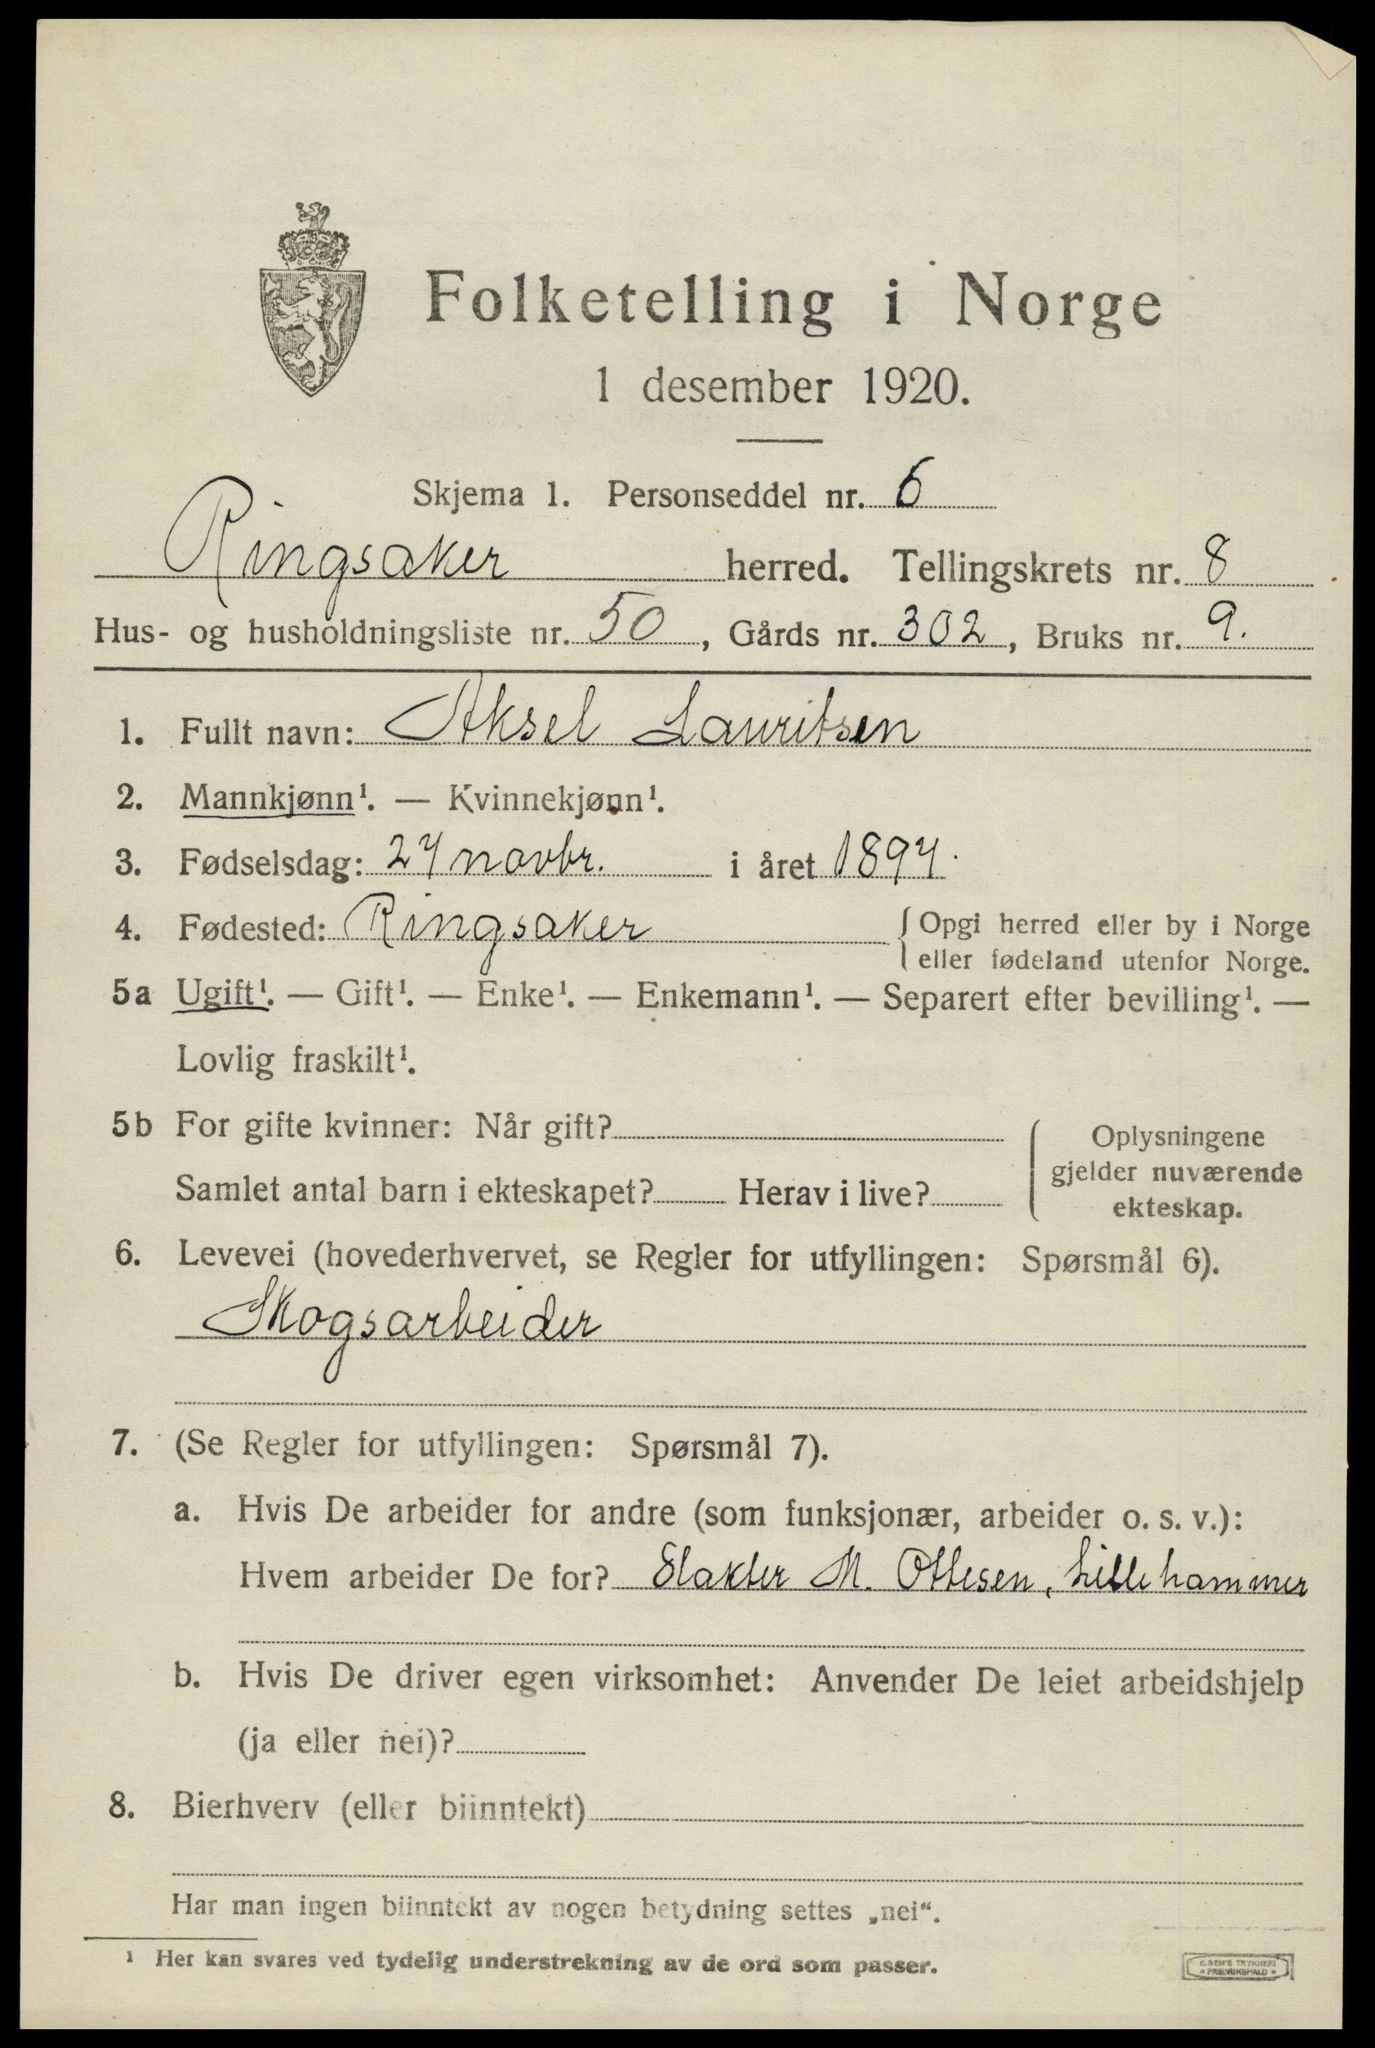 Folketelling i Norge
1 desember 1920.
Skjema 1. Personseddel nr. 6
Ringsaker herred. Tellingskrets nr. 8
Hus- og husholdningsliste nr. 50, Gårds nr. 302, Bruks nr. 9.
1. Fullt navn: Aksel Lauritsen
2. Mannkjønn¹. — Kvinnekjønn¹.
3. Fødselsdag: 27 novbr. i året 1897.
4. Fødested: Ringsaker { Opgi herred eller by i Norge
eller fødeland utenfor Norge.
5a Ugift¹. — Gift¹. — Enke¹. — Enkemann¹. — Separert efter bevilling¹. —
Lovlig fraskilt¹.
5b For gifte kvinner: Når gift?
Samlet antal barn i ekteskapet? Herav i live?
Oplysningene
gjelder nuværende
ekteskap.
6. Levevei (hovederhvervet, se Regler for utfyllingen: Spørsmål 6).
Skogsarbeider
7. (Se Regler for utfyllingen: Spørsmål 7).
a. Hvis De arbeider for andre (som funksjonær, arbeider o. s. v.):
Hvem arbeider De for? Slakter M. Ottesen, Lillehammer
b. Hvis De driver egen virksomhet: Anvender De leiet arbeidshjelp
(ja eller nei)?
8. Bierhverv (eller biinntekt)
Har man ingen biinntekt av nogen betydning settes „nei“.
¹ Her kan svares ved tydelig understrekning av de ord som passer.
E. SEM'S TRYKKERI
• FREDRIKSHALD •